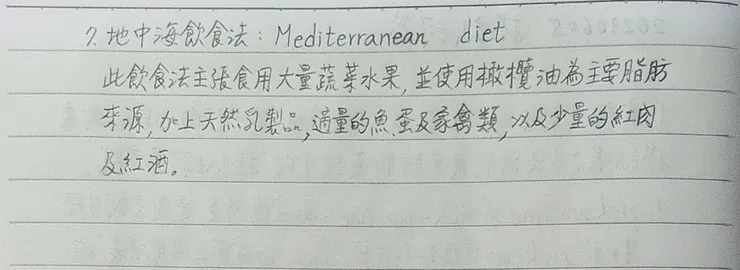 7. 地中海飲食法：Mediterranean diet
此飲食法主張食用大量蔬菜水果，並使用橄欖油為主要脂肪
來源，加上天然乳製品，適量的魚、蛋及家禽類，以及少量的紅肉
及紅酒。